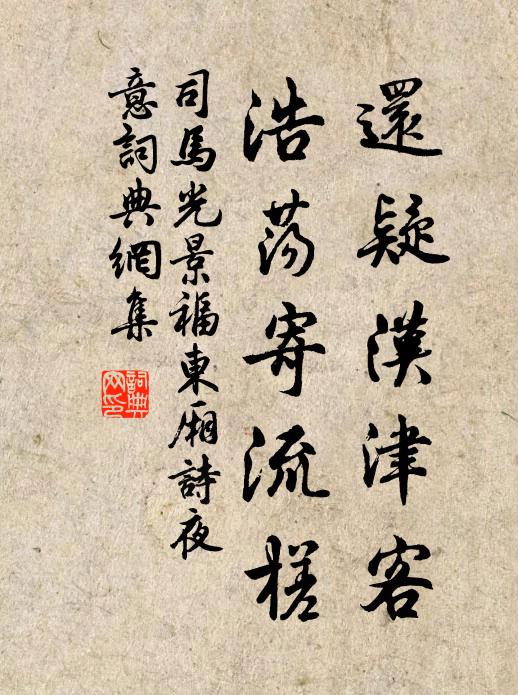 還疑漢津客
浩蕩寄流槎
司馬光景福東廂詩夜
意詞典網集
詞典
网印